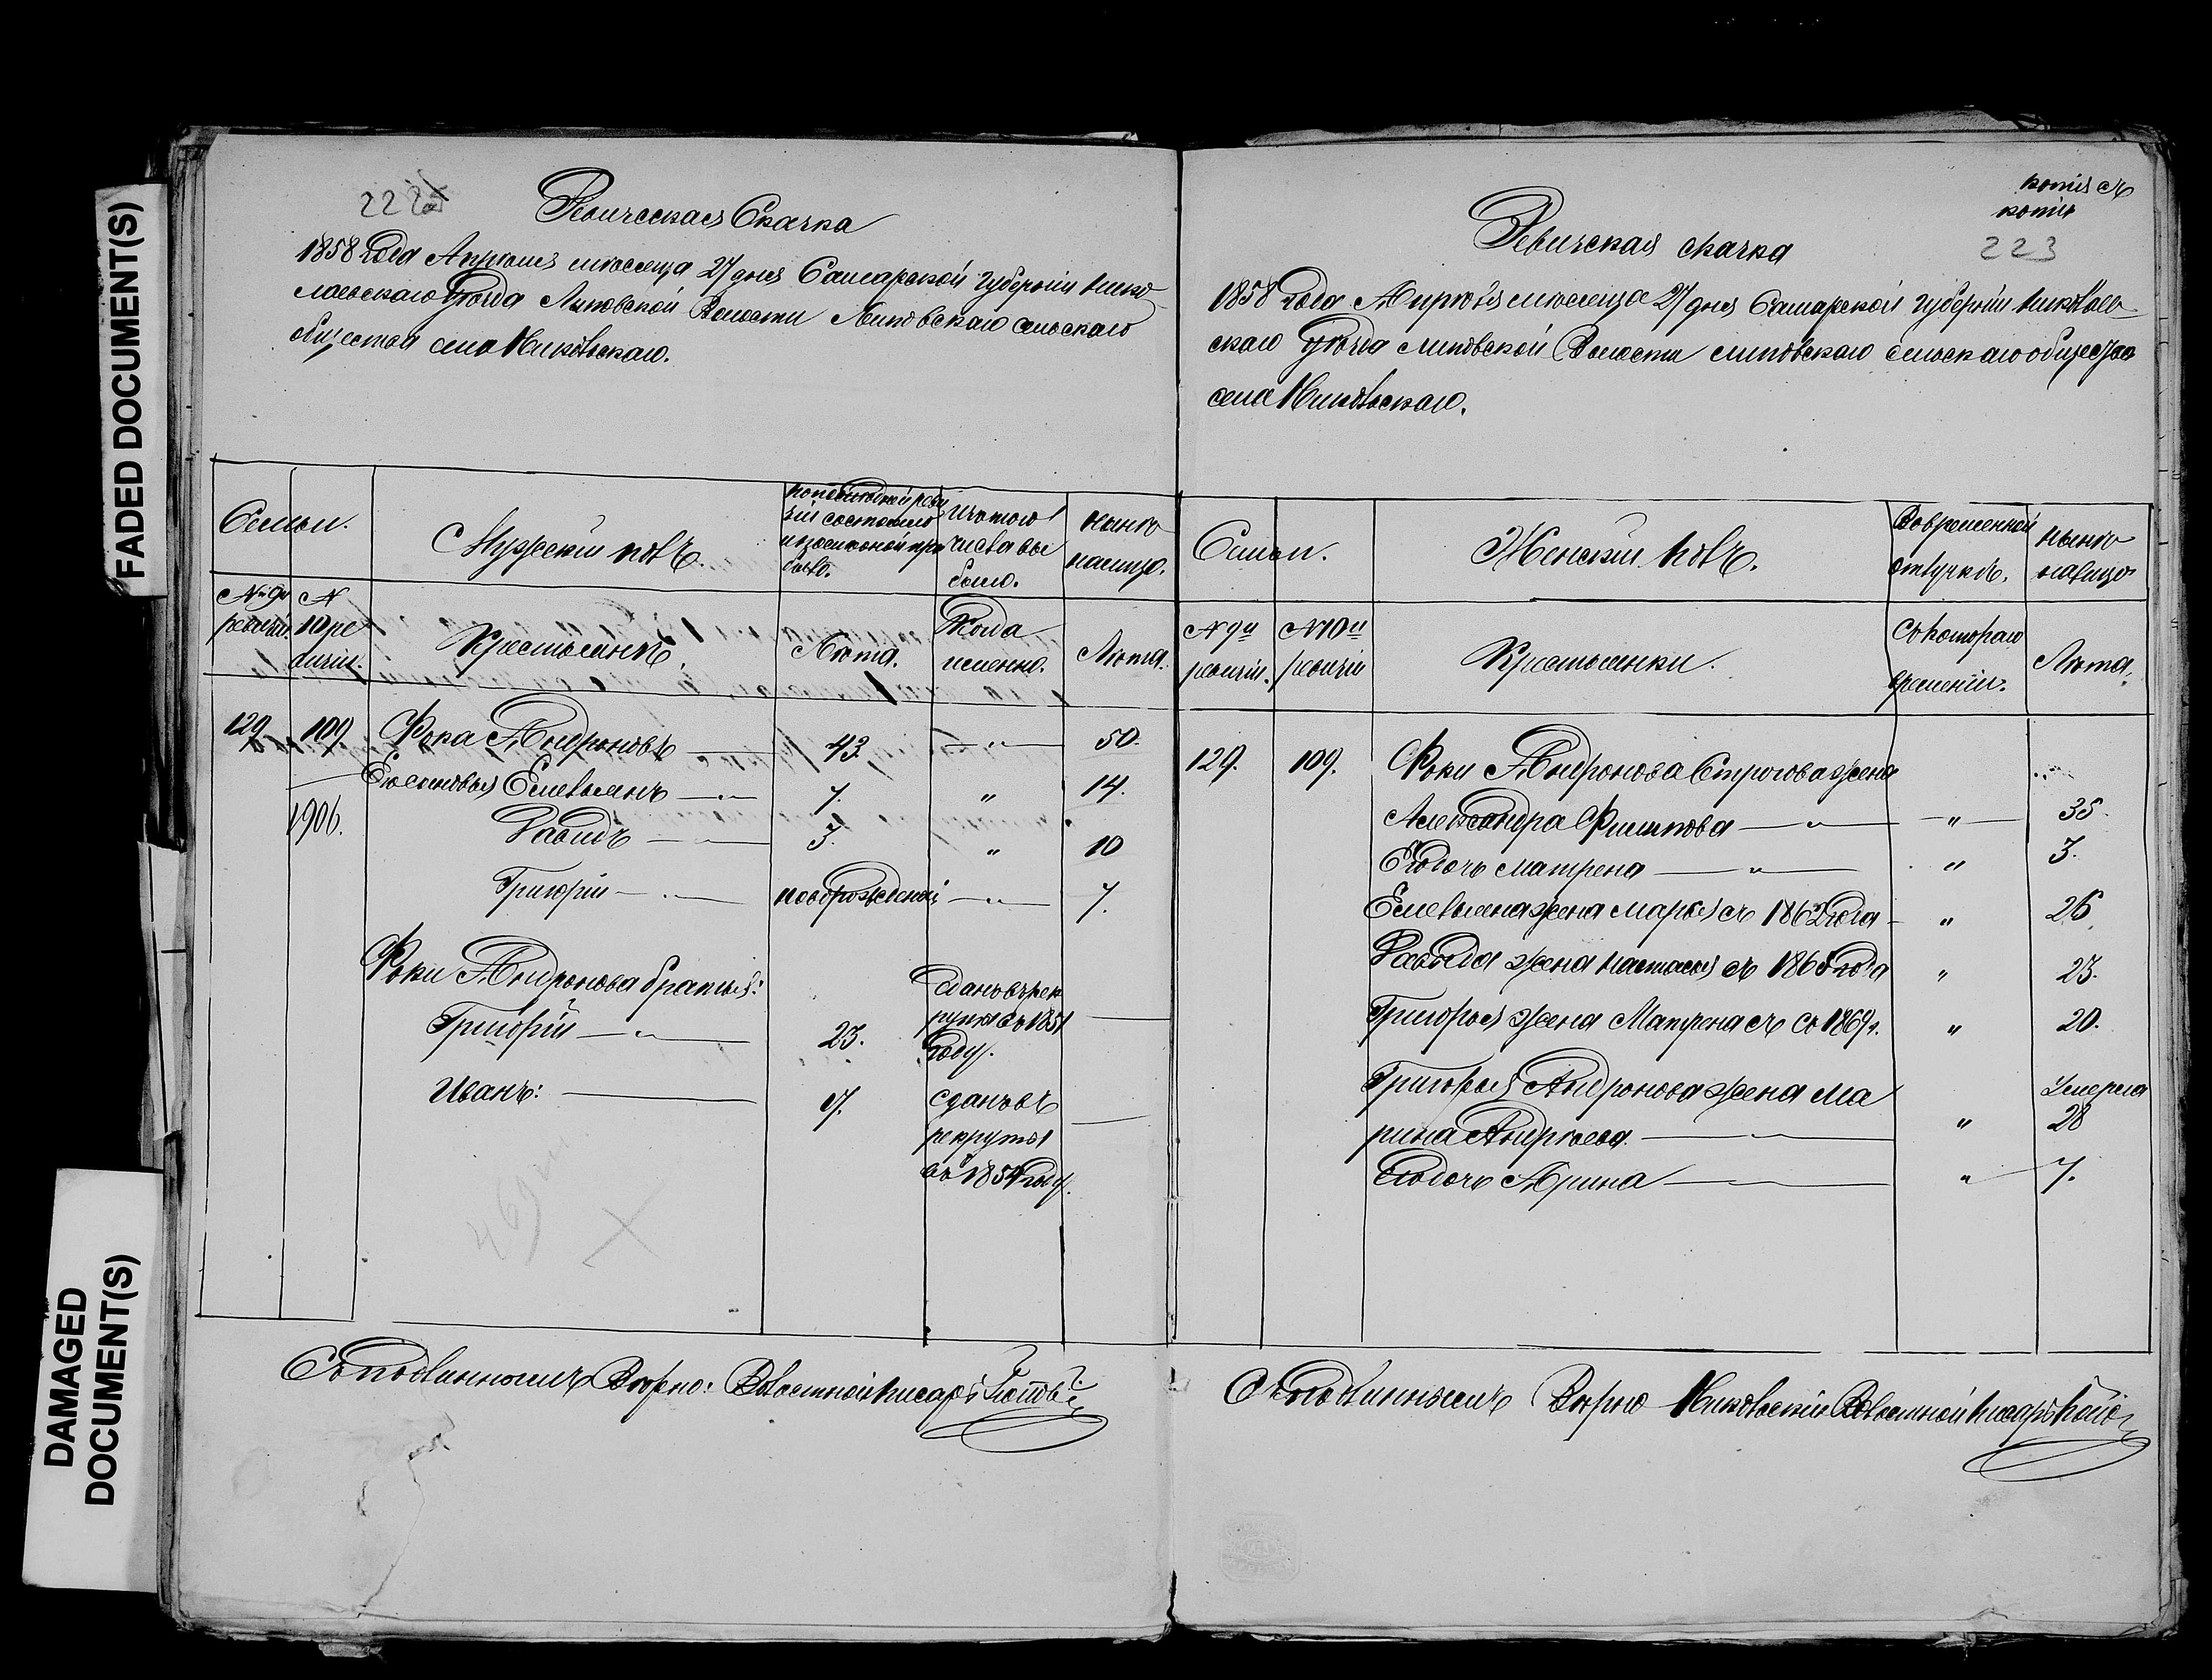 FADED DOCUMENT(S)
DAMAGED
DOCUMENT(S)
222
Ревическая Скачка
1858 Года Апрѣля мѣсяца 27 дня Самарской губерніи Нико-
лаевскаго Уѣзда Липовской Волости Липовскаго сельскаго
общества села Никольскаго.
Семьи.
Мужескій полъ.
по послѣдней реви
зіи состояло
Изъ того
числа вы
было.
нынѣ
налицо.
№ 9й
ревизіи.
№
10 ре
визіи.
Крестьянѣ.
Лѣта.
Когда
именно.
Лѣта.
129
109
Фока Андроновъ
43.
"
50.
Ево сыновья Емельянъ
7.
"
14.
1906.
Давидъ
3.
"
10
Григорій
новорожденый
"
7.
Фоки Андронова братья:
Григорій
23.
Сданъ въ рек
рукты въ 1851
Году.
Иванъ:
сданъ въ
рекруты
въ 1854 году.
Съ подлиннымъ Вѣрно: Волостной писарь
копія съ
копіи
223
Ревичская скачка
1858 Года Апрѣля мѣсяца 27 дня Самарской губерніи Николаев-
скаго Уѣзда Липовской Волости Липовскаго сельскаго общества
села Никольскаго.
Семьи.
Женскій полъ.
Вовременной
отлучкѣ.
нынѣ
налицо
№ 9й
ревизіи.
№ 10й
ревизіи
Крестьянки.
Съ котораго
времени.
Лѣта.
129.
109.
Фоки Андронова Строгова жена
Александра Филипова
"
35.
Ево дочь Матрена
"
3.
Емельяна жена Марья съ 1862 года
"
26.
Давыда жена Настасья съ 1865 года
"
23.
Григорья жена Матрена съ со 1869 г.
"
20.
Григорья Андронова жена Ма
рина Андрѣева
"
Умерла
28
Ево дочь Арина
"
7.
Съ подлиннымъ Вѣрно Никольскій Волостной писарь